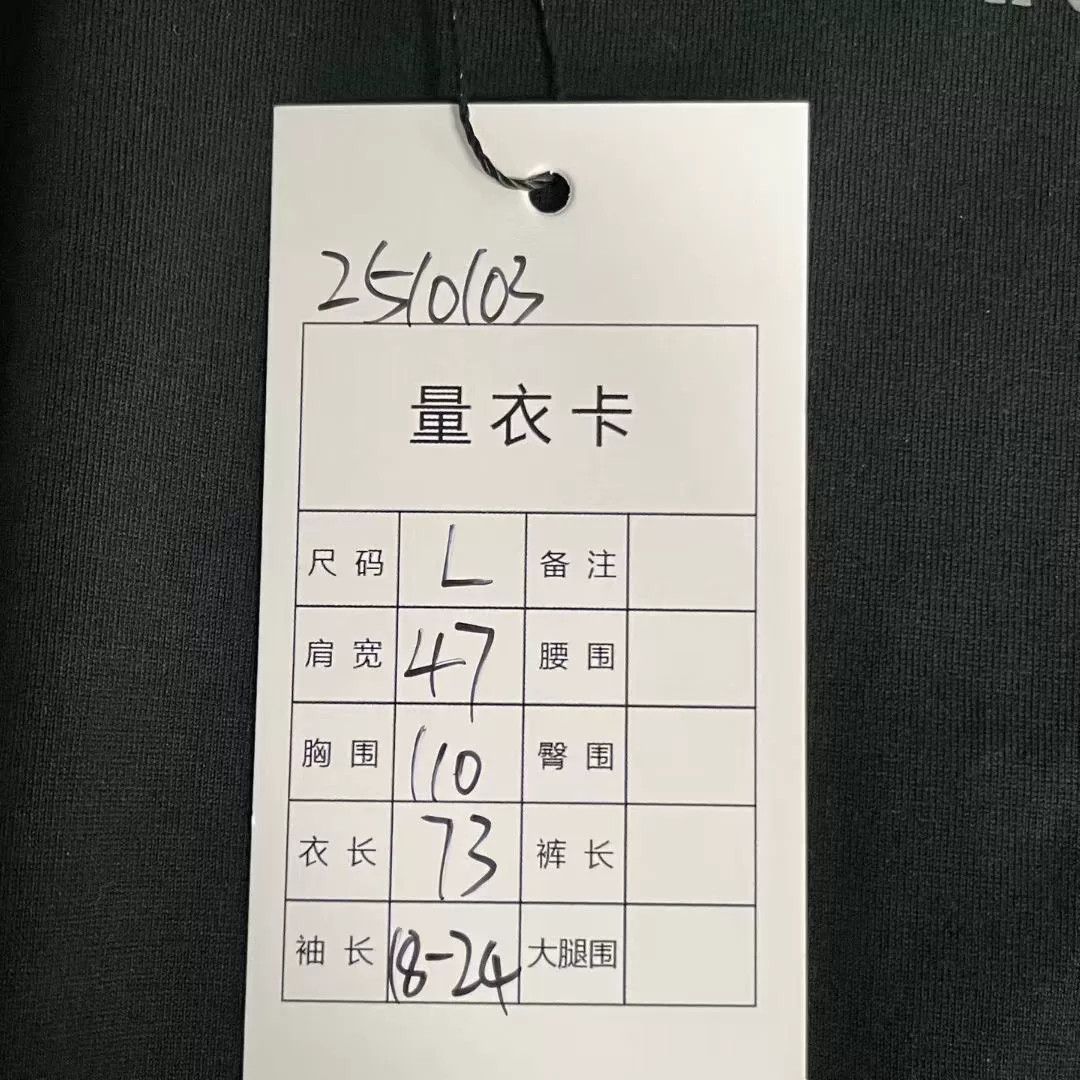 2510103
量衣卡
尺码 L 备注
肩宽 47 腰围
胸围 110 臀围
衣长 73 裤长
袖长 18-24 大腿围